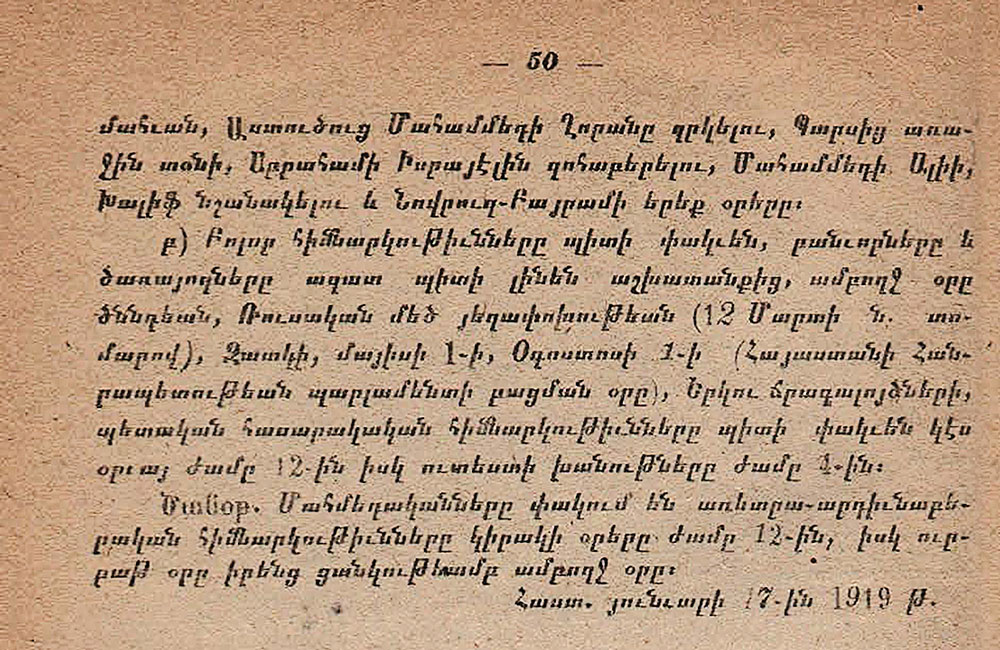 — 50 —
մահւան, Աստուծուց Մահամմեդի Ղորանը գրկելու, Պարսից առա-
ջին տօնի, Աբրահամի Իսրայէլին զոհաբերելու, Մահամմեդի Ալիի,
Խալիֆ նշանակելու և Նովրուզ-Բայրամի երեք օրերը։
բ) Բոլոր հիմնարկութիւնները պիտի փակւեն, բանւորները և
ծառայողները ազատ պիտի լինեն աշխատանքից, ամբողջ օրը
ծննդեան, Ռուսական մեծ յեղափոխութեան (12 Մարտի ն. տո-
մարով), Զատկի, մայիսի 1-ի, Օգոստոսի 1-ի (Հայաստանի Հան-
րապետութեան պարլամէնտի բացման օրը), Երկու ճրագալոյծների,
պետական հասարակական հիմնարկութիւնները պիտի փակւեն կէս
օրւայ ժամը 12-ին իսկ ուտեստի խանութները ժամը 4-ին։
Ծանօթ. Մահմեդականները փակում են առևտրա-արդիւնաբե-
րական հիմնարկութիւնները կիրակի օրերը ժամը 12-ին, իսկ ուր-
բաթ օրը իրենց ցանկութեամբ ամբողջ օրը։
Հաստ. յունւարի 17-ին 1919 թ.